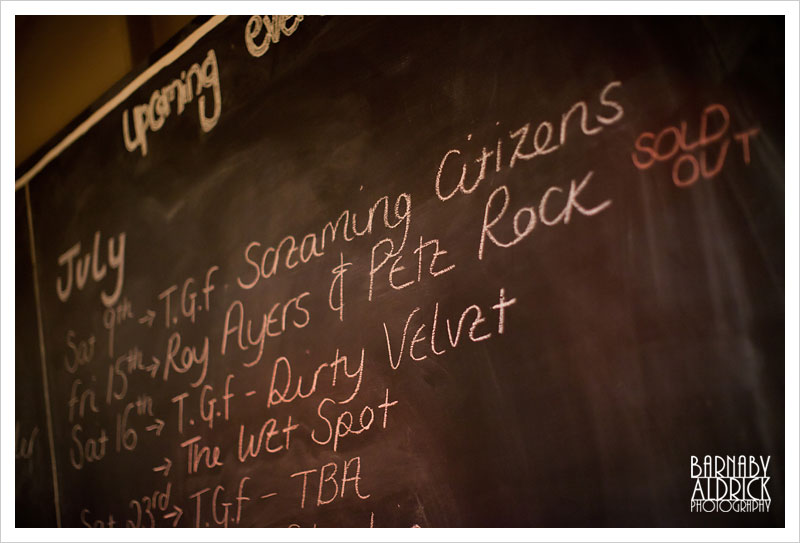 Upcoming eve
July
Sat 9th → T.G.f. Screaming Citizens
Fri 15th → Roy Ayers & Pete Rock SOLD OUT
Sat 16th → T.G.f - Dirty Velvet
→ The Wet Spot
Sat 23rd → T.G.f - TBA
BARNABY
ALDRICK
PHOTOGRAPHY